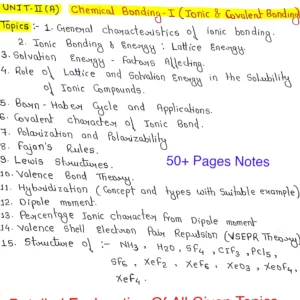 UNIT-II(A) Chemical Bonding-I (Ionic & Covalent Bonding)
Topics :- 1. General characteristics of ionic bonding.
2. Ionic Bonding & Energy : Lattice Energy.
3. Solvation Energy - Factors Affecting.
4. Role of Lattice and Solvation Energy in the Solubility
of Ionic Compounds.
5. Born-Haber Cycle and Applications.
6. Covalent character of Ionic Bond.
7. Polarization and Polarizability
8. Fajan's Rules.
9. Lewis Structures.
50+ Pages Notes
10. Valence Bond Theory.
11. Hybridization (Concept and types with suitable example)
12. Dipole moment.
13. Percentage Ionic character from Dipole moment
14. Valence Shell Electron Pair Repulsion (VSEPR Theory)
15. Structure of :- NH3, H2O, SF4, ClF3, PCl5,
SF6, XeF2, XeF6, XeO3, XeOF4,
XeF4.